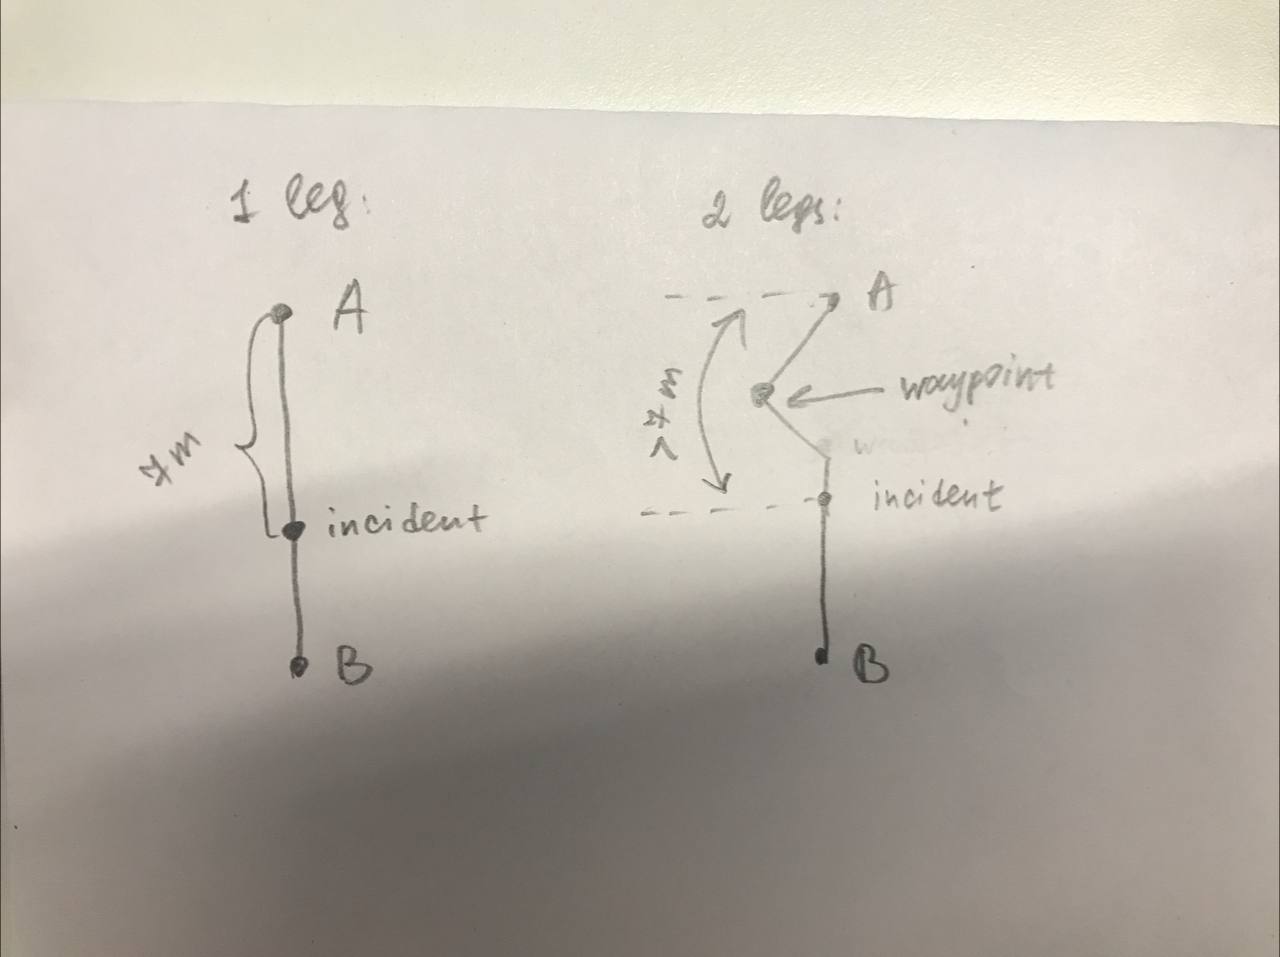 1 leg:
A
7 m
incident
B
2 legs:
A
waypoint
> 7 m
incident
B